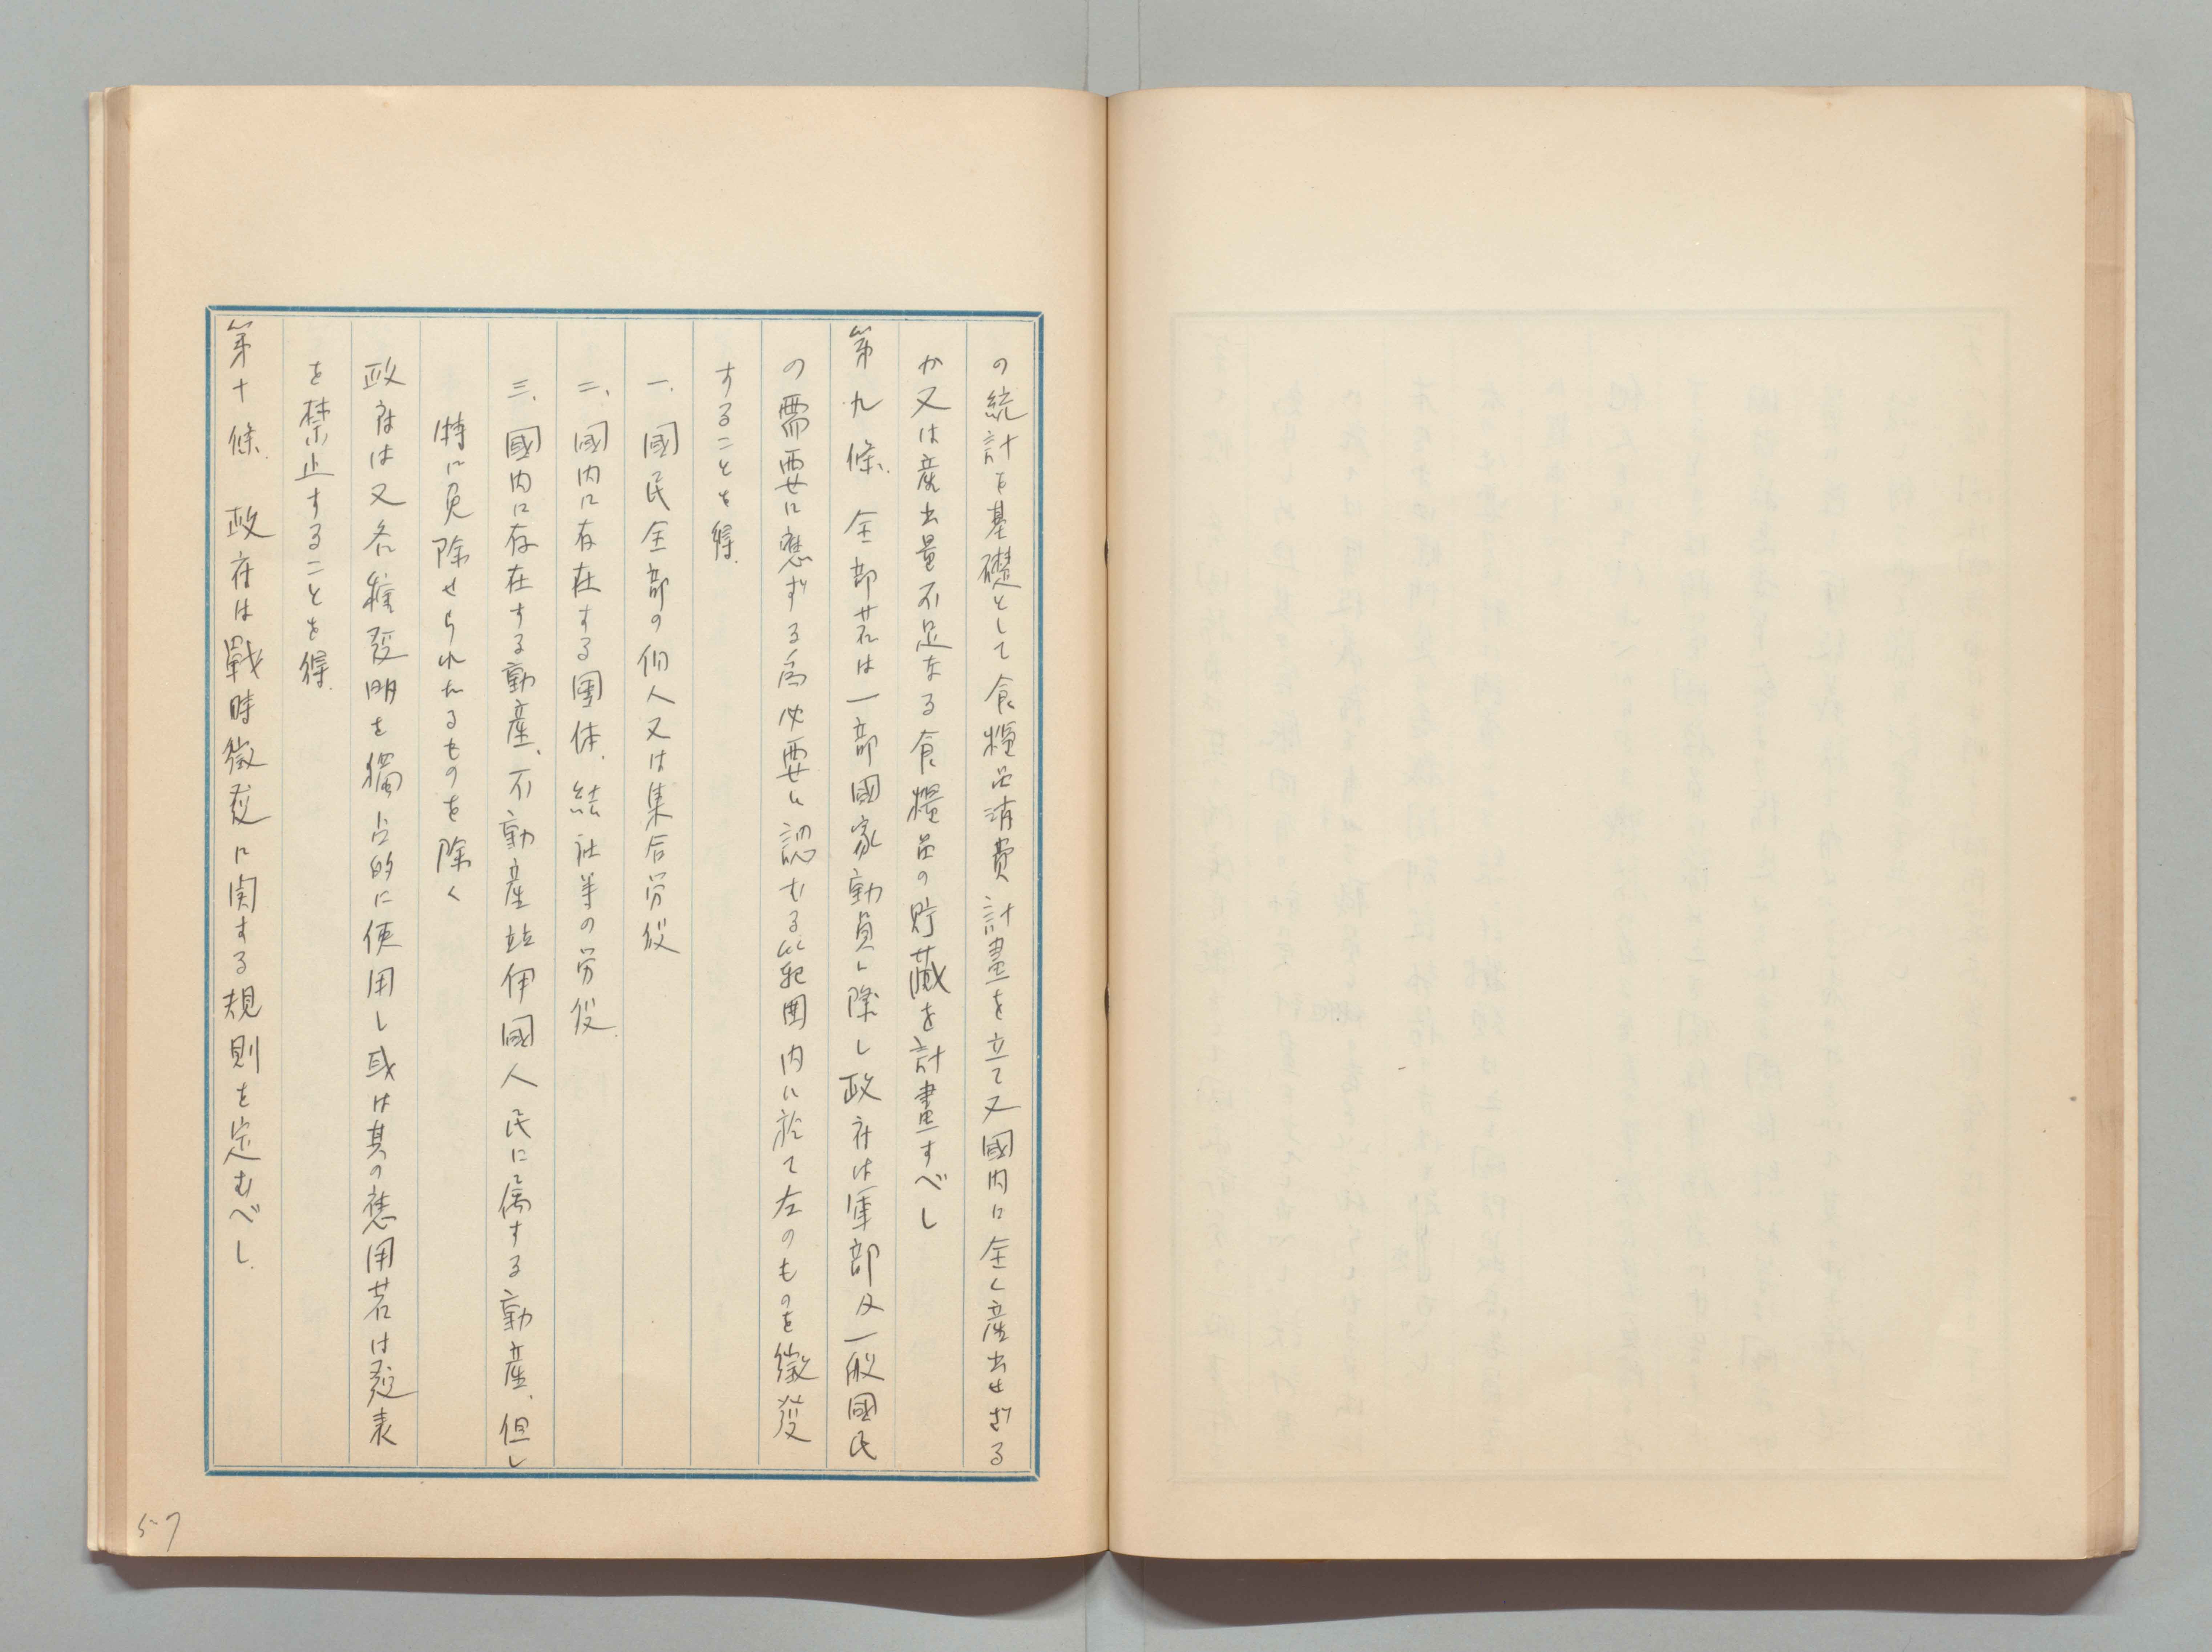 の統計を基礎として食糧品消費計畫を立て又國内に全く産出せざる
か又は産出量不足なる食糧品の貯藏を計畫すべし
第九條、全部若は一部國家動員に際し政府は軍部及一般國民
の需要に應ずる為必要と認むる範囲内に於て左のものを徴發
することを得.
一、國民全部の個人又は集合労役
二、國内に存在する團体、結社等の労役.
三、國内に存在する動産、不動産並伊國人民に属する動産、但し
特に免除せられたるものを除く
政府は又各種發明を獨占的に使用し或は其の應用若は發表
を禁止することを得.
第十條、政府は戰時徴發に関する規則を定むべし.
57